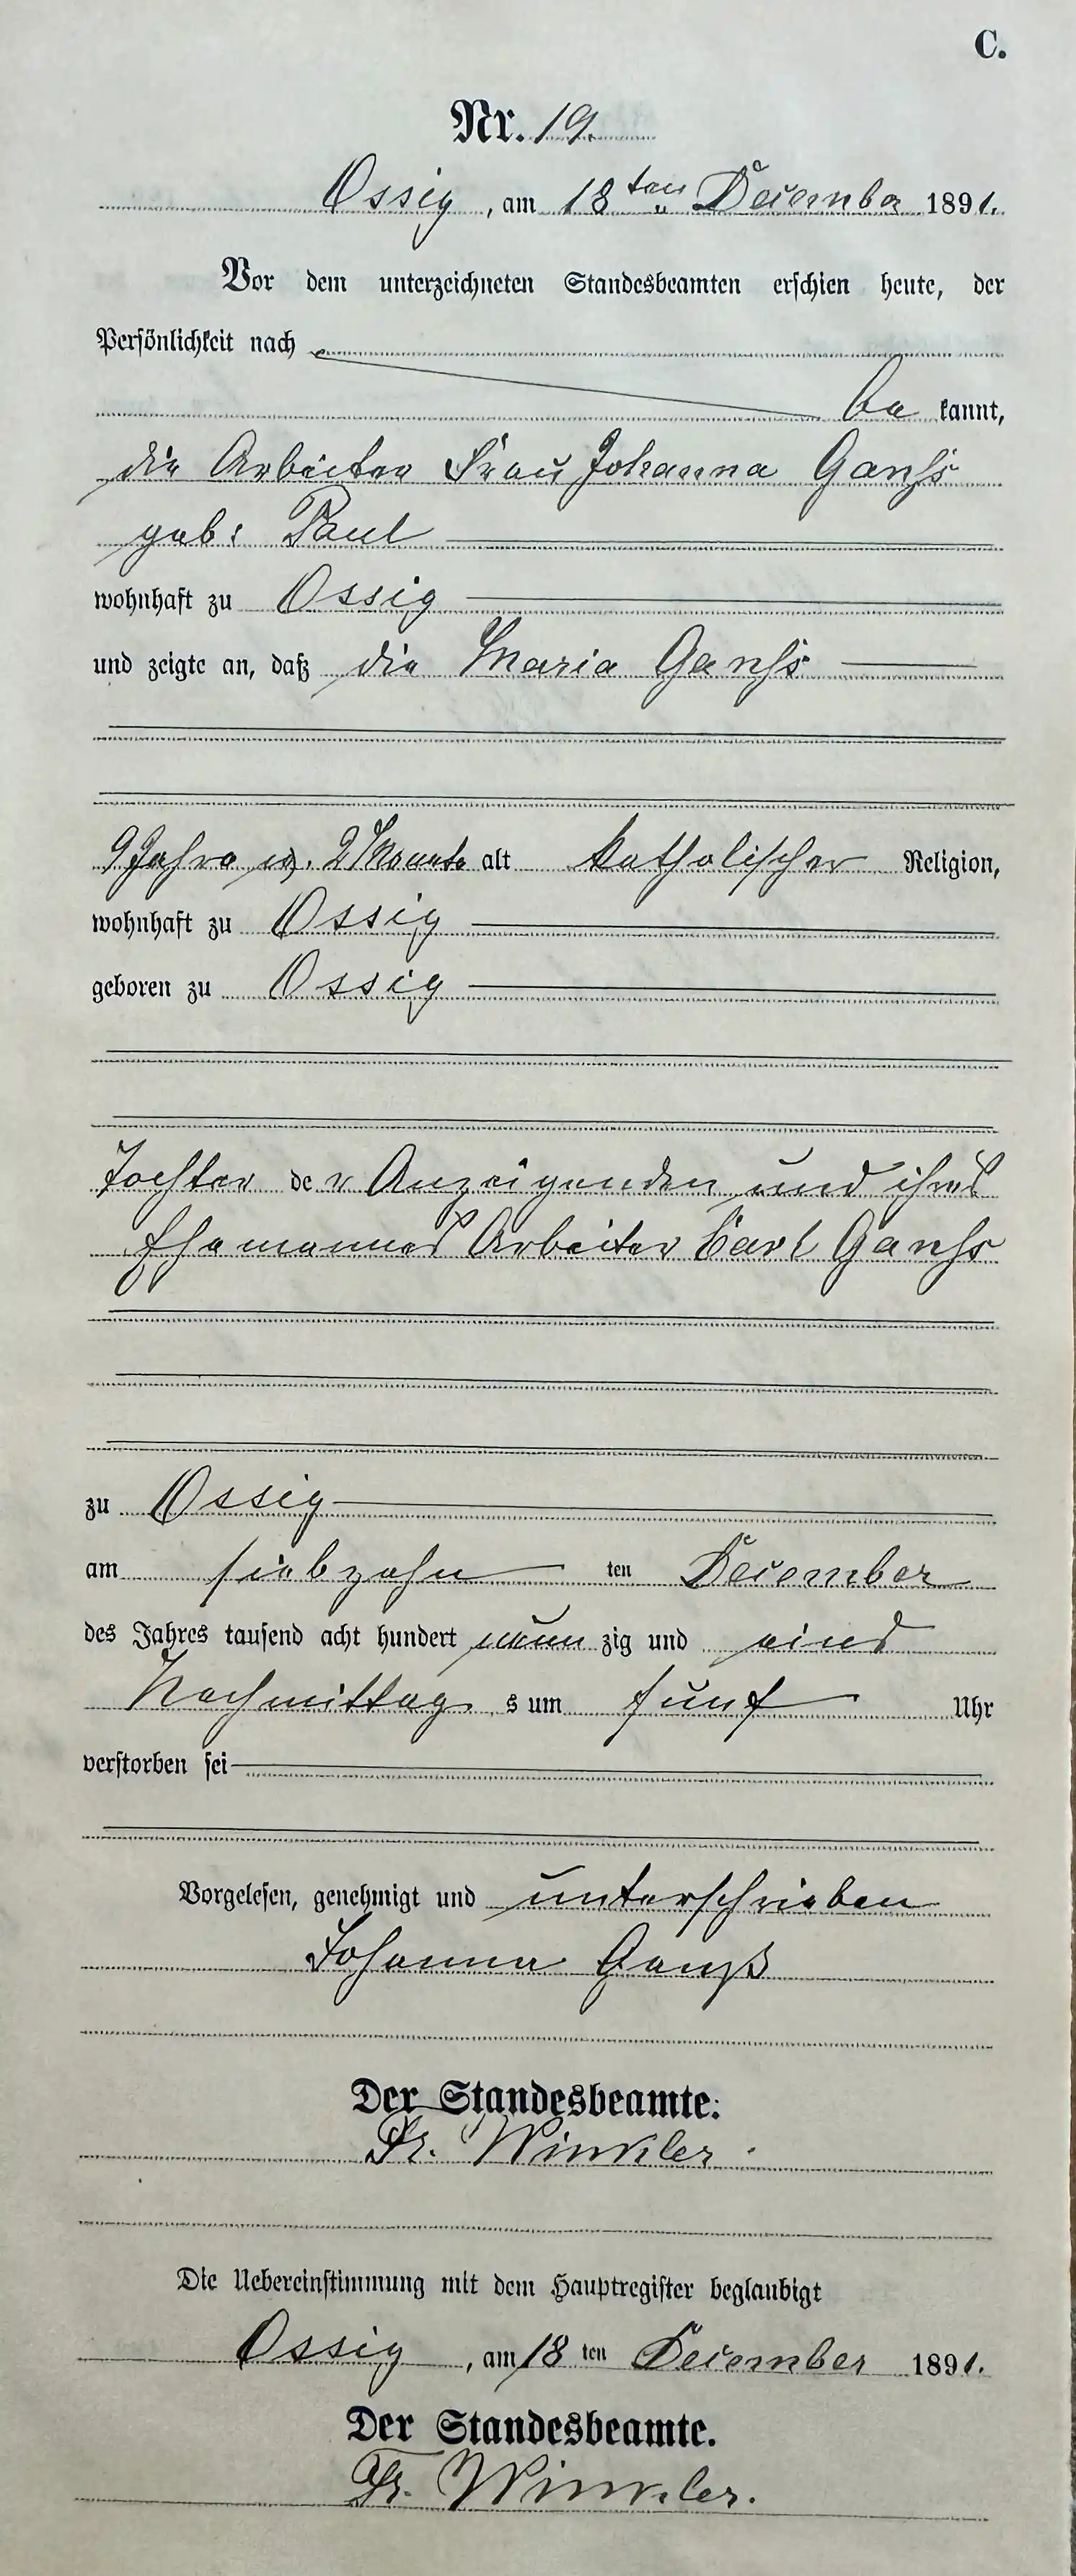 C.
Nr. 19.
Ossig, am 18ten December 1891.
Vor dem unterzeichneten Standesbeamten erschien heute, der
Persönlichkeit nach
be kannt,
die Arbeiter Frau Johanna Ganß
geb: Paul
wohnhaft zu Ossig
und zeigte an, daß die Maria Ganß
9 Jahre u. 2 Monate alt katholischer Religion,
wohnhaft zu Ossig
geboren zu Ossig
Tochter der Anzeigenden und ihres
Ehemannes Arbeiter Carl Ganß
zu Ossig
am siebzehn ten December
des Jahres tausend acht hundert neun zig und eins
Nachmittag s um fünf Uhr
verstorben sei
Vorgelesen, genehmigt und unterschrieben
Johanna Ganß
Der Standesbeamte.
Fr. Winkler.
Die Uebereinstimmung mit dem Hauptregister beglaubigt
Ossig, am 18 ten December 1891.
Der Standesbeamte.
Fr. Winkler.